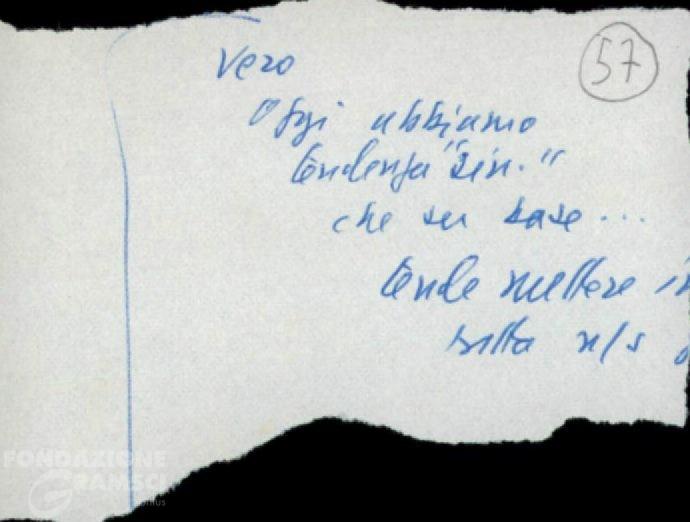 57
Vero
Oggi abbiamo
tendenza "sin."
che su base ...
tende mettere in
n/s
FONDAZIONE
GRAMSCI
onlus